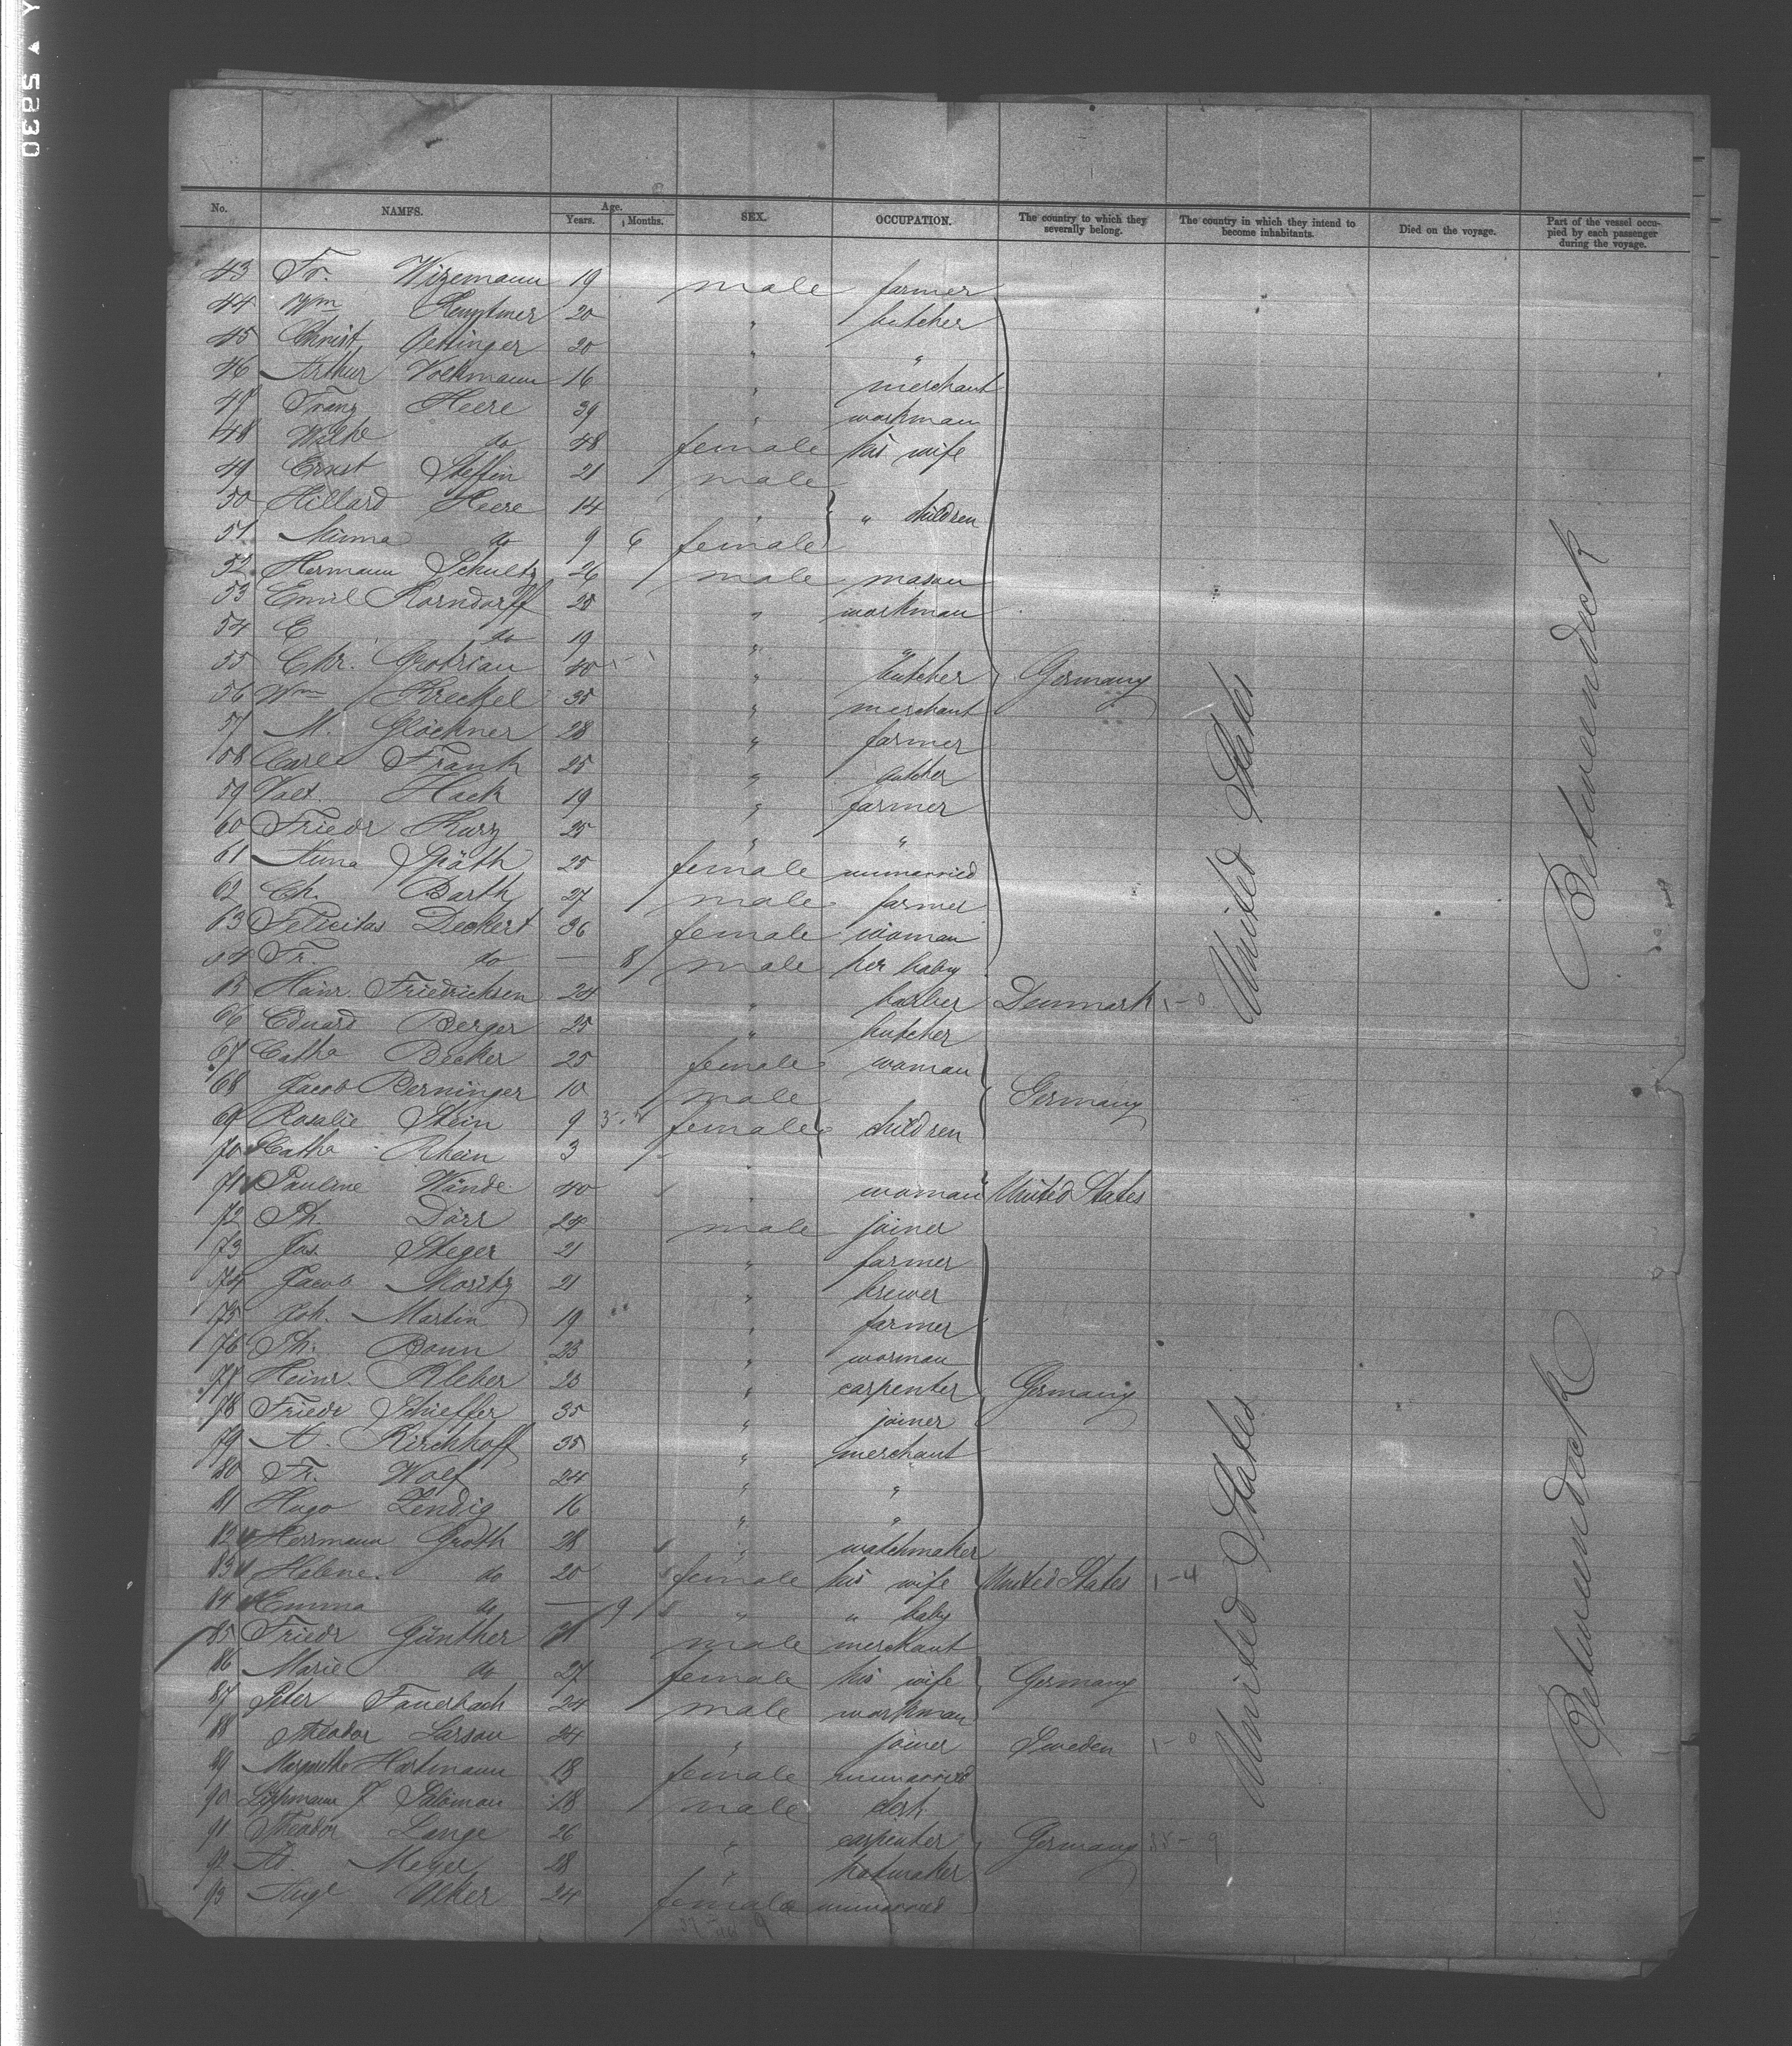 No. NAMES. Age. Years. Months. SEX. OCCUPATION. The country to which they severally belong. The country in which they intend to become inhabitants. Died on the voyage. Part of the vessel occupied by each passenger during the voyage.
43 Fr. Wizemann 19 male farmer
44 Wm 20 " butcher
45 Christ Oettinger 20 " "
46 Arthur Volkmann 16 " merchant
47 Franz Heere 39 " workman
48 do 48 female his wife
49 Ernst Steffin 21 male
50 Hillard Heere 14 " " children
51 Minna do 9 6 female
52 Hermann Schultz 26 male mason
53 Emil Korndorff 28 " workman
54 E do 19 " "
55 Chr. Grotrian 40 " butcher Germany
56 Wm Kreckel 35 " merchant
57 M. Glöckner 28 " farmer
58 Carl Frank 25 " butcher
59 Val. Hack 19 " farmer
60 Friedr Kurz 25 " "
61 Anna Späth 25 female unmarried
62 Ch. Barth 27 male farmer
63 Felicitas Deckert 36 female woman
64 Fr. do — 8 male her baby
65 Heinr. Friedricksen 24 " barber Denmark 1-0
66 Eduard Berger 25 " butcher
67 Catha Becker 25 female woman
68 Jacob Berninger 10 male Germany
69 Rosalie Stein 9 female children
70 Catha Rhein 3 "
71 Pauline Wände 40 " woman United States
72 Ph. Dörr 24 male joiner
73 Jos. Steger 21 " farmer
74 Jacob Moritz 21 " brewer
75 Joh. Martin 19 " farmer
76 Ph. Bonn 23 " worman
77 Heinr. Kleber 23 " carpenter Germany
78 Friedr Schieffer 35 " joiner
79 A. Kirchhoff 35 " merchant
80 Fr. Wolf 24 " "
81 Hugo Lendig 16 " "
82 Herrmann Groth 28 " watchmaker
83 Helene do 20 female his wife United States 1-4
84 Emma do — 9 " " baby
85 Friedr Günther male merchant
86 Marie do 27 female his wife Germany
87 Peter Fauerbach 24 male workman
88 Theodor Larson 24 " joiner Sweden 1-0
89 Margarethe Hartmann 18 female unmarried
90 Lippmann J Salomon 18 male clerk
91 Theodor Lange 26 " carpenter Germany
92 Ad. Meyer 28 " hatmaker
93 Aug. 24 female unmarried
United States
Betweendeck
United States
Betweendeck